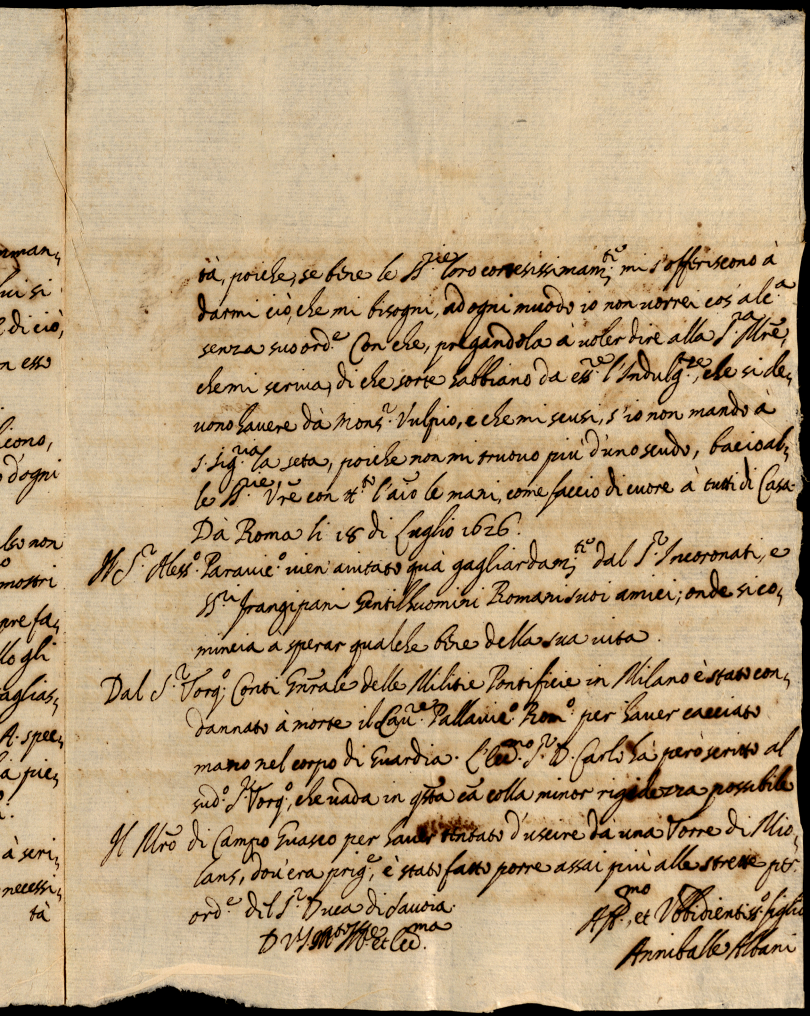 mman,
lui si
e di ciò,
n esso
leono,
d'ogni
also non
mostri
pre fa,
llo gli
aglias,
A. spec,
la pie,
à seri,
necessi,
tà
tà, poiche, se bene le SS.rie loro cortesissimam.te mi s'offeriscono à
darmi ciò, che mi bisogni, ad ogni muodo io non vorrei cos'alc.a
senza suo ord.e Con che, pregandola à voler dire alla S.ra Mre,
che mi scriva, di che sorte habbiano da ess.re l'Indulg.ze, che si de,
vono havere da Mons.r Vulpio, e che mi scusi, s'io non mando à
S. Sig.ria la seta, poiche non mi truovo più d'uno scudo, bacio al,
le SS.rie Vre con tt.o l'aio le mani, come faccio di cuore à tutti di Casa.
Da Roma li 18 di Luglio 1626.
Il S.r Aless.o Paravic.o vien aiutato quà gagliardam.te dal S.r Incoronati, e
SS.ri Frangipani Gentilhuomini Romani suoi amici; onde si co,
mincia a sperar qualche bene della sua vita.
Dal S.r Torq.o Conti Gnrale delle Militie Pontificie in Milano è stato con,
dannato à morte il Cav.re Pallavic.o Rom.o per haver cacciato
mano nel corpo di Guardia. L'Ecc.mo S.r D. Carlo hà però scritto al
sud.o S.r Torq.o, che vada in qsta cã colla minor rigidezza possibile
Il Mro di Campo Guasco per haver tentato d'uscire da una Torre di Mio,
lans, dov'era prig.e, è stato fatto porre assai più alle strette p
ord.e del S.r Duca di Savoia.
Aff.mo, et Ubbidientiss.o figlio
Annibale Albani